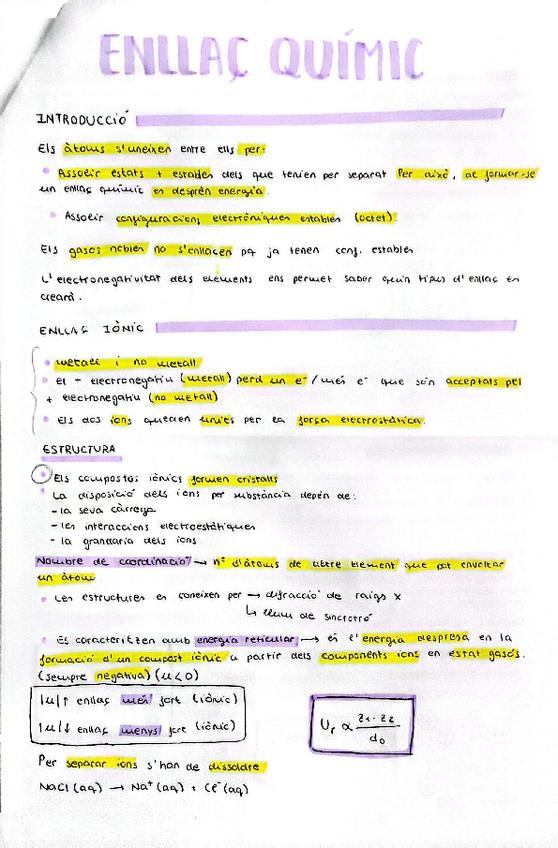 ENLLAÇ QUÍMIC
INTRODUCCIÓ
Els àtoms s'uneixen entre ells per:
• Assolir estats + estables dels que tenien per separat. Per això, al formar-se
un enllaç químic es desprèn energia.
• Assolir configuracions electròniques estables (octet).
Els gasos nobles no s'enllacen pq ja tenen conf. estables
L'electronegativitat dels elements ens permet saber quin tipus d'enllaç es
crearà.
ENLLAÇ IÒNIC
• metall i no metall
• el - electronegatiu (metall) perd un e⁻/més e⁻ que són acceptats pel
+ electronegatiu (no metall)
• Els dos ions queden units per la força electrostàtica.
ESTRUCTURA
• Els compostos iònics formen cristalls
• La disposició dels ions per substància depèn de:
- la seva càrrega
- les interaccions electroestàtiques
- la grandària dels ions
Nombre de coordinació → nº d'àtoms de altre element que pot envoltar
un àtom
• Les estructures es coneixen per → difracció de raigs x
↳ llum de sincrotró
• Es caracteritzen amb energia reticular → és l'energia despresa en la
formació d'un compost iònic a partir dels components ions en estat gasós.
(sempre negativa) (u<0)
|u|↑ enllaç més fort (iònic)
|u|↓ enllaç menys fort (iònic)
Ur ∝ z₁·z₂ / d₀
Per separar ions s'han de dissoldre
NaCl (aq) → Na⁺ (aq) + Cl⁻ (aq)